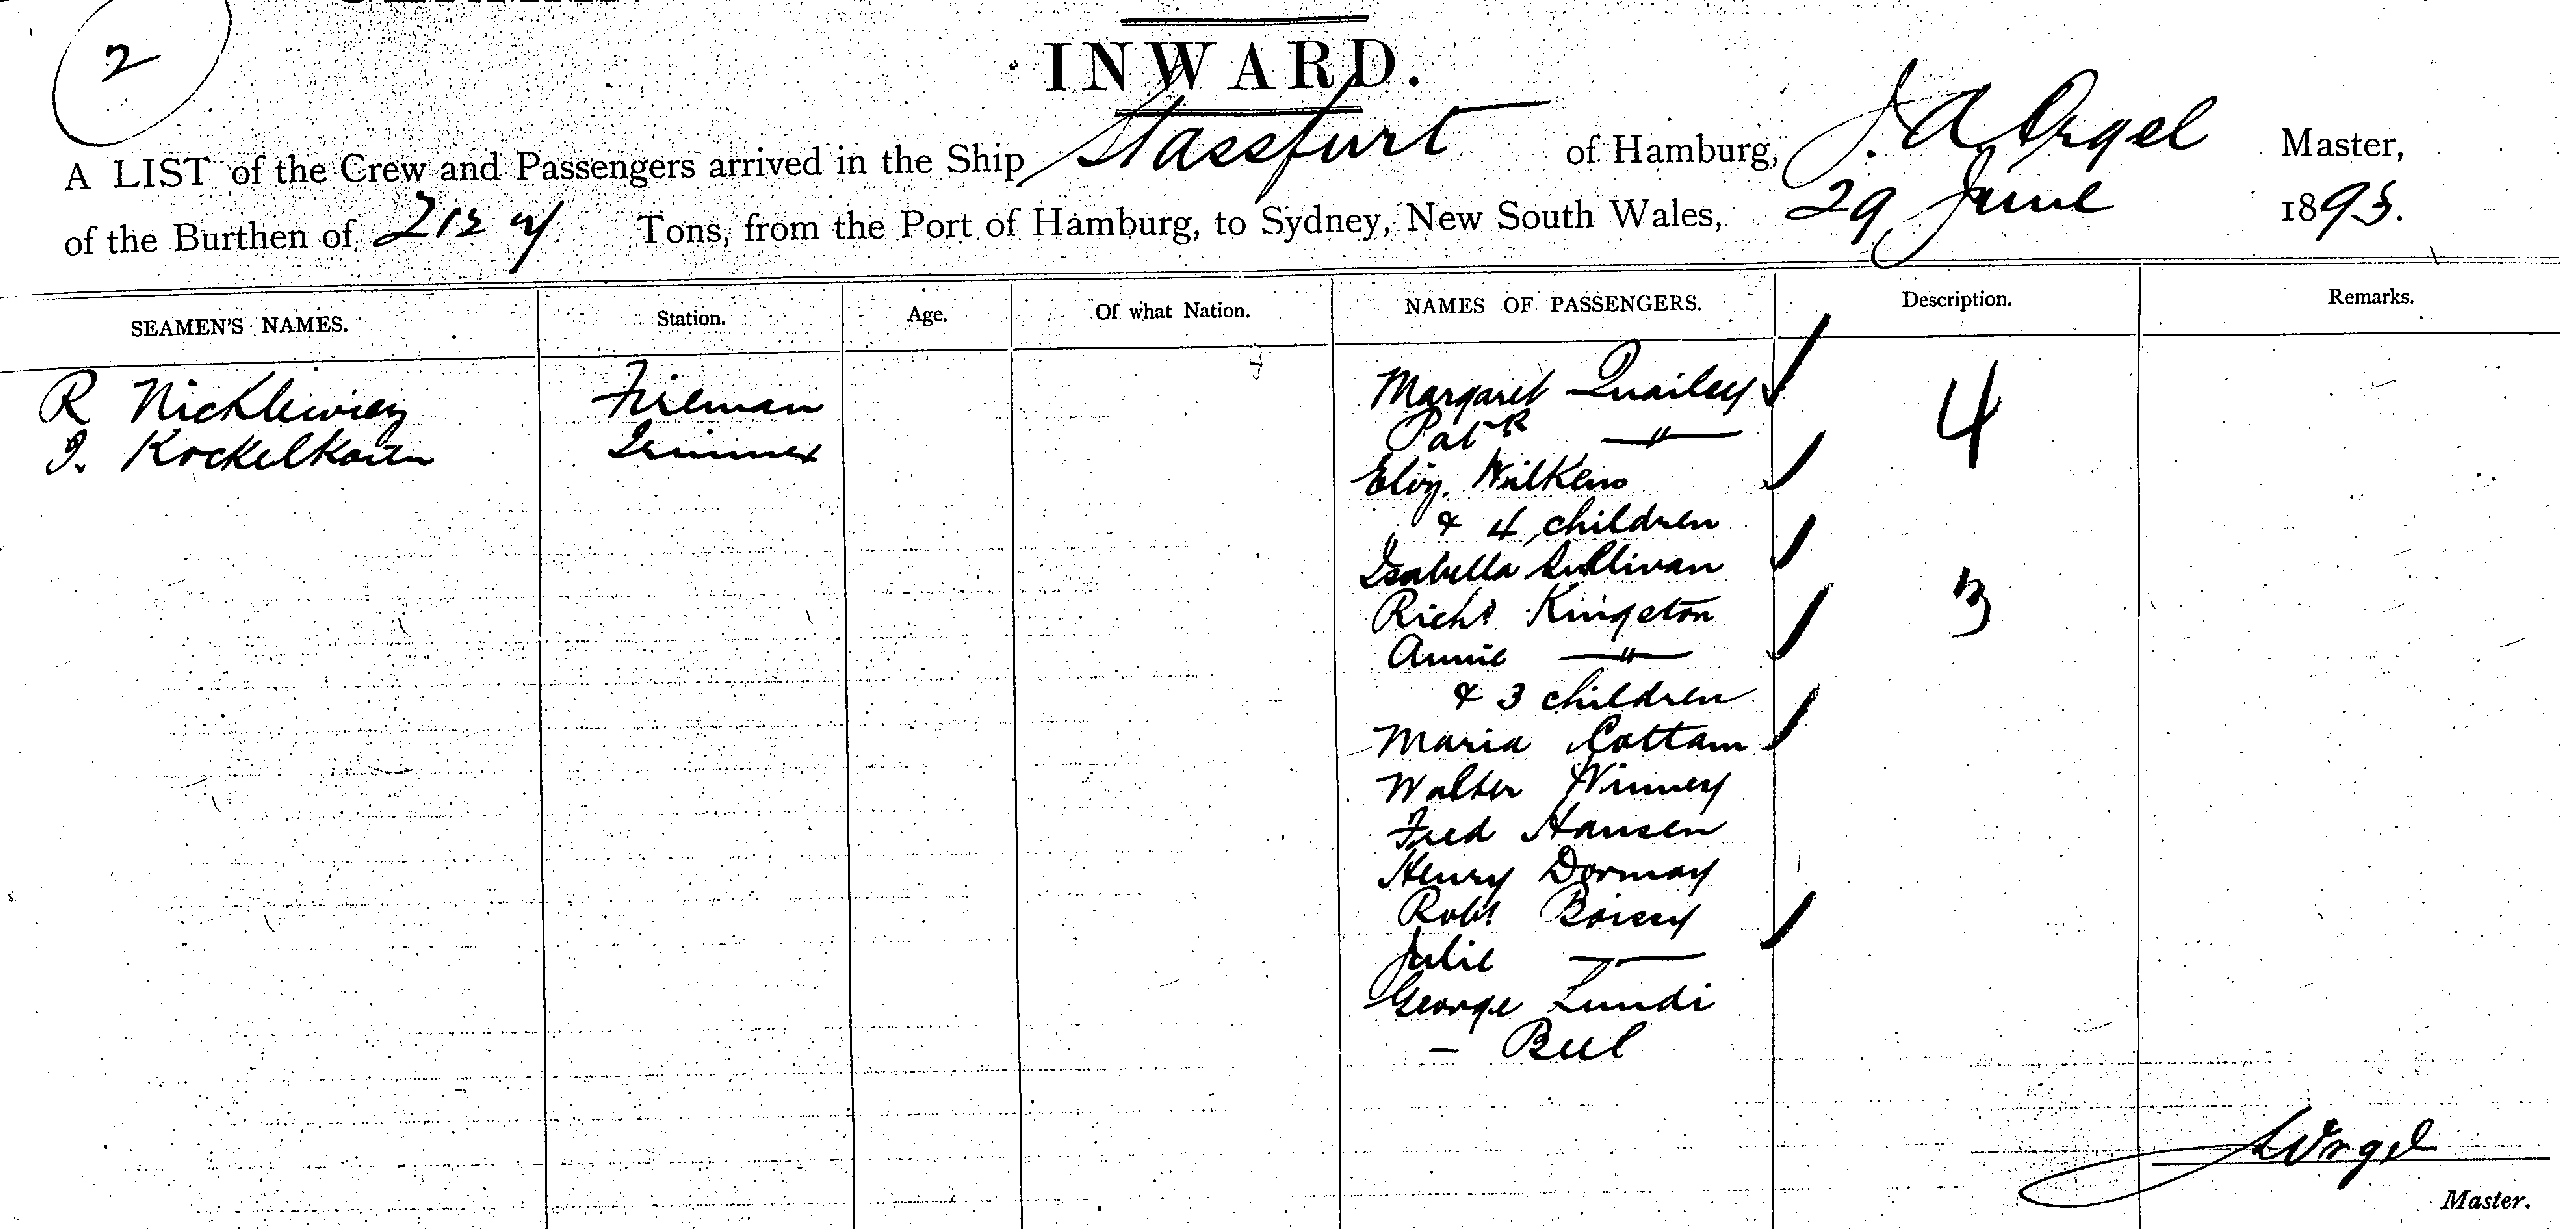 2
INWARD.
A LIST of the Crew and Passengers arrived in the Ship Stassfurt of Hamburg, J. A Orgel Master,
of the Burthen of Tons, from the Port of Hamburg, to Sydney, New South Wales, 29 June 1895.
SEAMEN'S NAMES. Station. Age. Of what Nation. NAMES OF PASSENGERS. Description. Remarks.
R Fireman Margaret Quailey 4
Pat " 
J. Trimmer
Eliz. Wilkens
& 4 children
Isabella Sullivan
Richd Kingston 3
Annie "
& 3 children
Maria Cottam
Walter Winney
Fred Hansen
Henry Dormay
Robt Boissy
Julie —"—
George Lundi
— Beel
Orgel
Master.